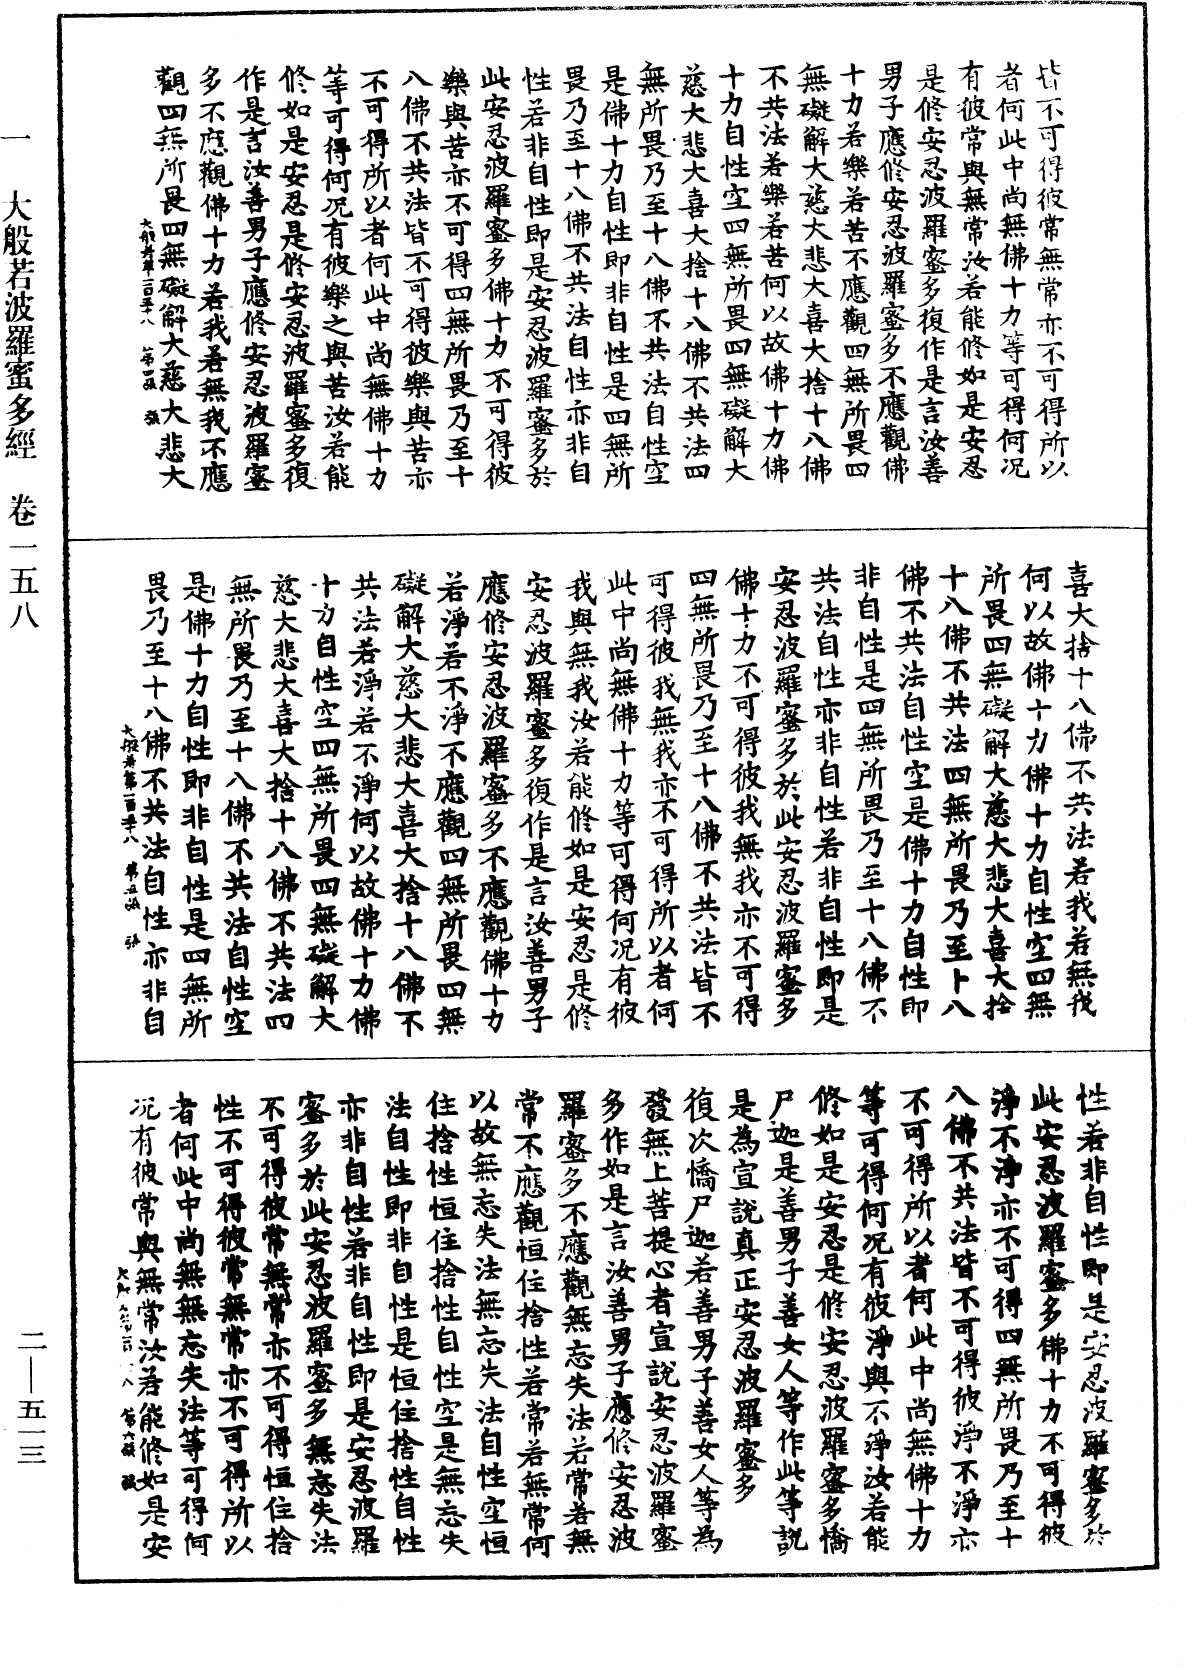 皆不可得彼常無常亦不可得所以
者何此中尚無佛十力等可得何况
有彼常與無常汝若能修如是安忍
是修安忍波羅蜜多復作是言汝善
男子應修安忍波羅蜜多不應觀佛
十力若樂若苦不應觀四無所畏四
無礙解大慈大悲大喜大捨十八佛
不共法若樂若苦何以故佛十力佛
十力自性空四無所畏四無礙解大
慈大悲大喜大捨十八佛不共法四
無所畏乃至十八佛不共法自性空
是佛十力自性即非自性是四無所
畏乃至十八佛不共法自性亦非自
性若非自性即是安忍波羅蜜多於
此安忍波羅蜜多佛十力不可得彼
樂與苦亦不可得四無所畏乃至十
八佛不共法皆不可得彼樂與苦亦
不可得所以者何此中尚無佛十力
等可得何况有彼樂之與苦汝若能
修如是安忍是修安忍波羅蜜多復
作是言汝善男子應修安忍波羅蜜
多不應觀佛十力若我若無我不應
觀四無所畏四無礙解大慈大悲大
大般若第一百五十八 第四張
喜大捨十八佛不共法若我若無我
何以故佛十力佛十力自性空四無
所畏四無礙解大慈大悲大喜大捨
十八佛不共法四無所畏乃至十八
佛不共法自性空是佛十力自性即
非自性是四無所畏乃至十八佛不
共法自性亦非自性若非自性即是
安忍波羅蜜多於此安忍波羅蜜多
佛十力不可得彼我無我亦不可得
四無所畏乃至十八佛不共法皆不
可得彼我無我亦不可得所以者何
此中尚無佛十力等可得何况有彼
我與無我汝若能修如是安忍是修
安忍波羅蜜多復作是言汝善男子
應修安忍波羅蜜多不應觀佛十力
若淨若不淨不應觀四無所畏四無
礙解大慈大悲大喜大捨十八佛不
共法若淨若不淨何以故佛十力佛
十力自性空四無所畏四無礙解大
慈大悲大喜大捨十八佛不共法四
無所畏乃至十八佛不共法自性空
是佛十力自性即非自性是四無所
畏乃至十八佛不共法自性亦非自
大般若第一百五十八 第五張
性若非自性即是安忍波羅蜜多於
此安忍波羅蜜多佛十力不可得彼
淨不淨亦不可得四無所畏乃至十
八佛不共法皆不可得彼淨不淨亦
不可得所以者何此中尚無佛十力
等可得何况有彼淨與不淨汝若能
修如是安忍是修安忍波羅蜜多憍
尸迦是善男子善女人等作此等說
是為宣說真正安忍波羅蜜多
復次憍尸迦若善男子善女人等為
發無上菩提心者宣說安忍波羅蜜
多作如是言汝善男子應修安忍波
羅蜜多不應觀無忘失法若常若無
常不應觀恒住捨性若常若無常何
以故無忘失法無忘失法自性空恒
住捨性恒住捨性自性空是無忘失
法自性即非自性是恒住捨性自性
亦非自性若非自性即是安忍波羅
蜜多於此安忍波羅蜜多無忘失法
不可得彼常無常亦不可得恒住捨
性不可得彼常無常亦不可得所以
者何此中尚無無忘失法等可得何
况有彼常與無常汝若能修如是安
第六張
一 大般若波羅蜜多經 卷一五八
二—五一三